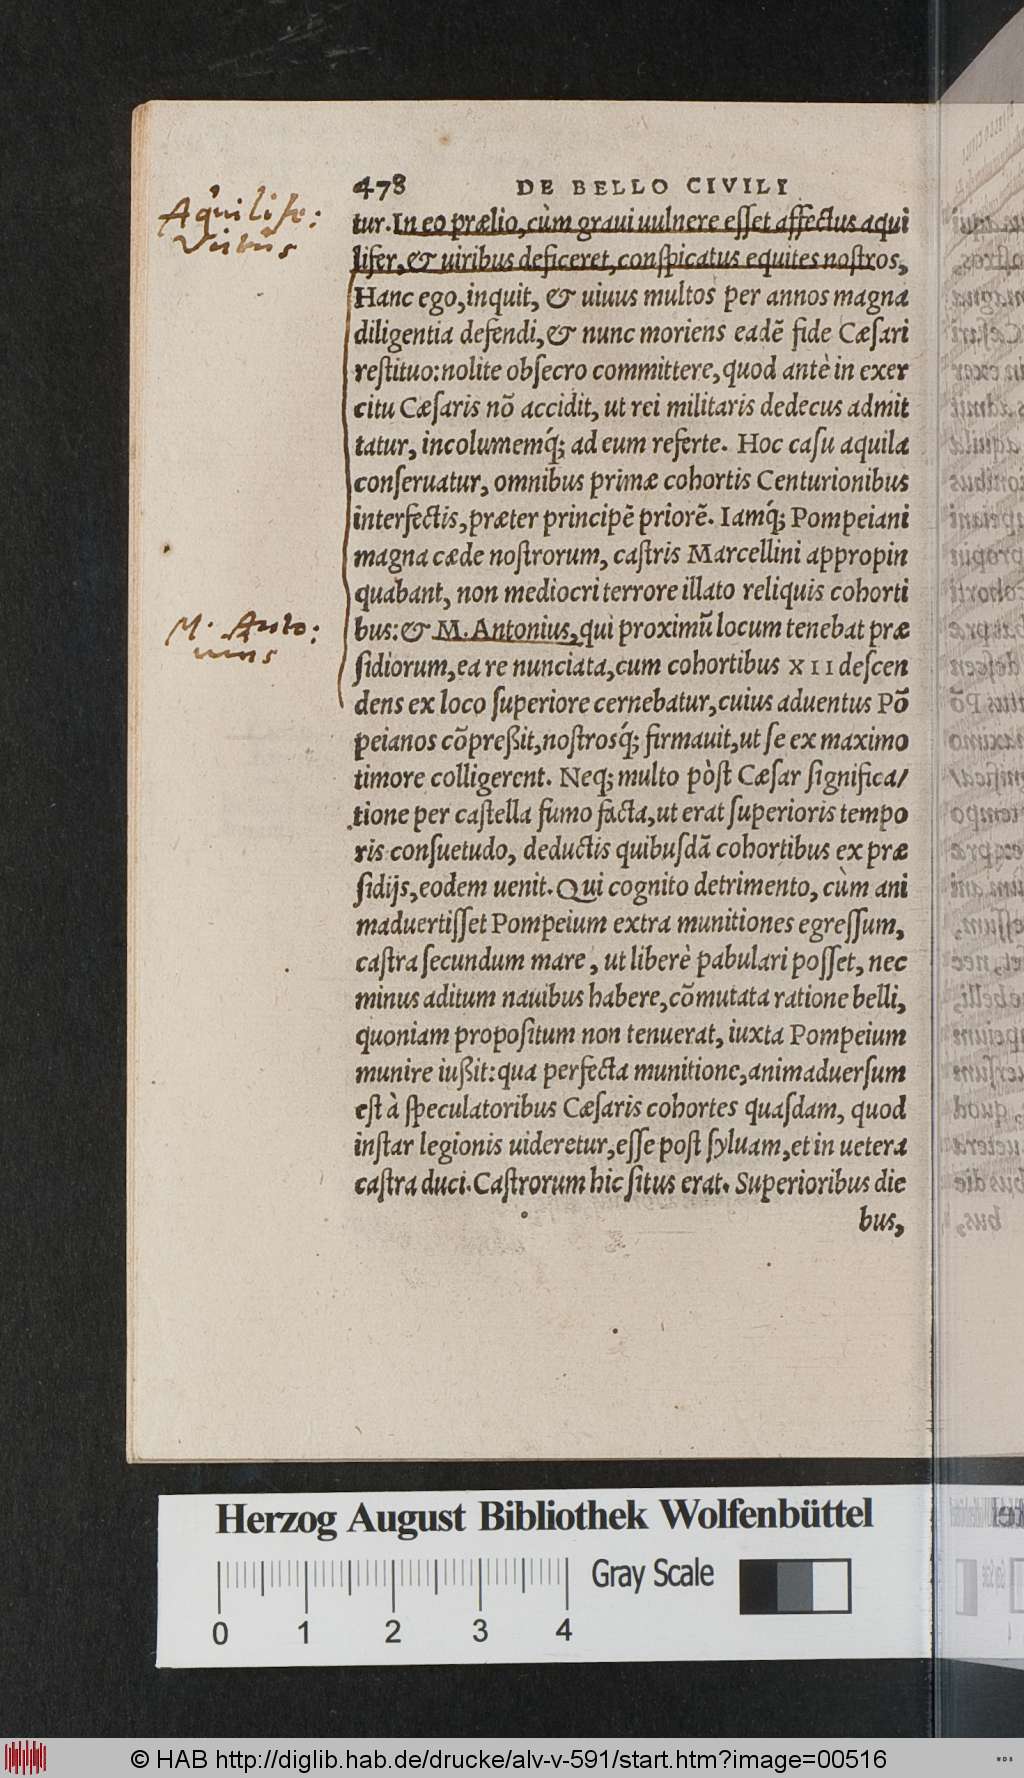 478 DE BELLO CIVILI
Aquilife:
Virtus
tur. In eo prælio, cùm graui uulnere esset affectus aqui
lifer, & uiribus deficeret, conspicatus equites nostros,
Hanc ego, inquit, & uiuus multos per annos magna
diligentia defendi, & nunc moriens eadē fide Cæsari
restituo: nolite obsecro committere, quod antè in exer
citu Cæsaris nō accidit, ut rei militaris dedecus admit
tatur, incolumemq́; ad eum referte. Hoc casu aquila
conseruatur, omnibus primæ cohortis Centurionibus
interfectis, præter principē priorē. Iamq́; Pompeiani
magna cæde nostrorum, castris Marcellini appropin
quabant, non mediocri terrore illato reliquis cohorti
M. Anto:
nius
bus: & M. Antonius, qui proximū locum tenebat præ
sidiorum, ea re nunciata, cum cohortibus XII descen
dens ex loco superiore cernebatur, cuius aduentus Pō
peianos cōpreßit, nostrosq́; firmauit, ut se ex maximo
timore colligerent. Neq; multo pòst Cæsar significa/
tione per castella fumo facta, ut erat superioris tempo
ris consuetudo, deductis quibusdā cohortibus ex præ
sidijs, eodem uenit. Qui cognito detrimento, cùm ani
maduertisset Pompeium extra munitiones egressum,
castra secundum mare, ut liberè pabulari posset, nec
minus aditum nauibus habere, cōmutata ratione belli,
quoniam propositum non tenuerat, iuxta Pompeium
munire iußit: qua perfecta munitione, animaduersum
est à speculatoribus Cæsaris cohortes quasdam, quod
instar legionis uideretur, esse post syluam, et in uetera
castra duci. Castrorum hic situs erat. Superioribus die
bus,
Herzog August Bibliothek Wolfenbüttel
0 1 2 3 4 Gray Scale
© HAB http://diglib.hab.de/drucke/alv-v-591/start.htm?image=00516